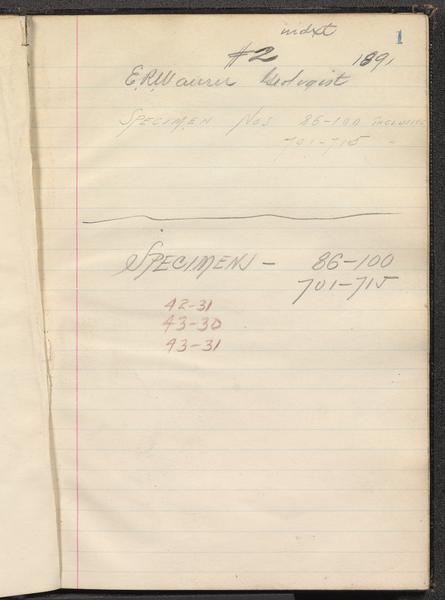 indxt
1
#2 1891
E.R. Maurer Geologist
SPECIMEN NOS 86-100 INCLUSIVE
701-715 "
SPECIMENS - 86-100
701-715
42-31
43-30
43-31